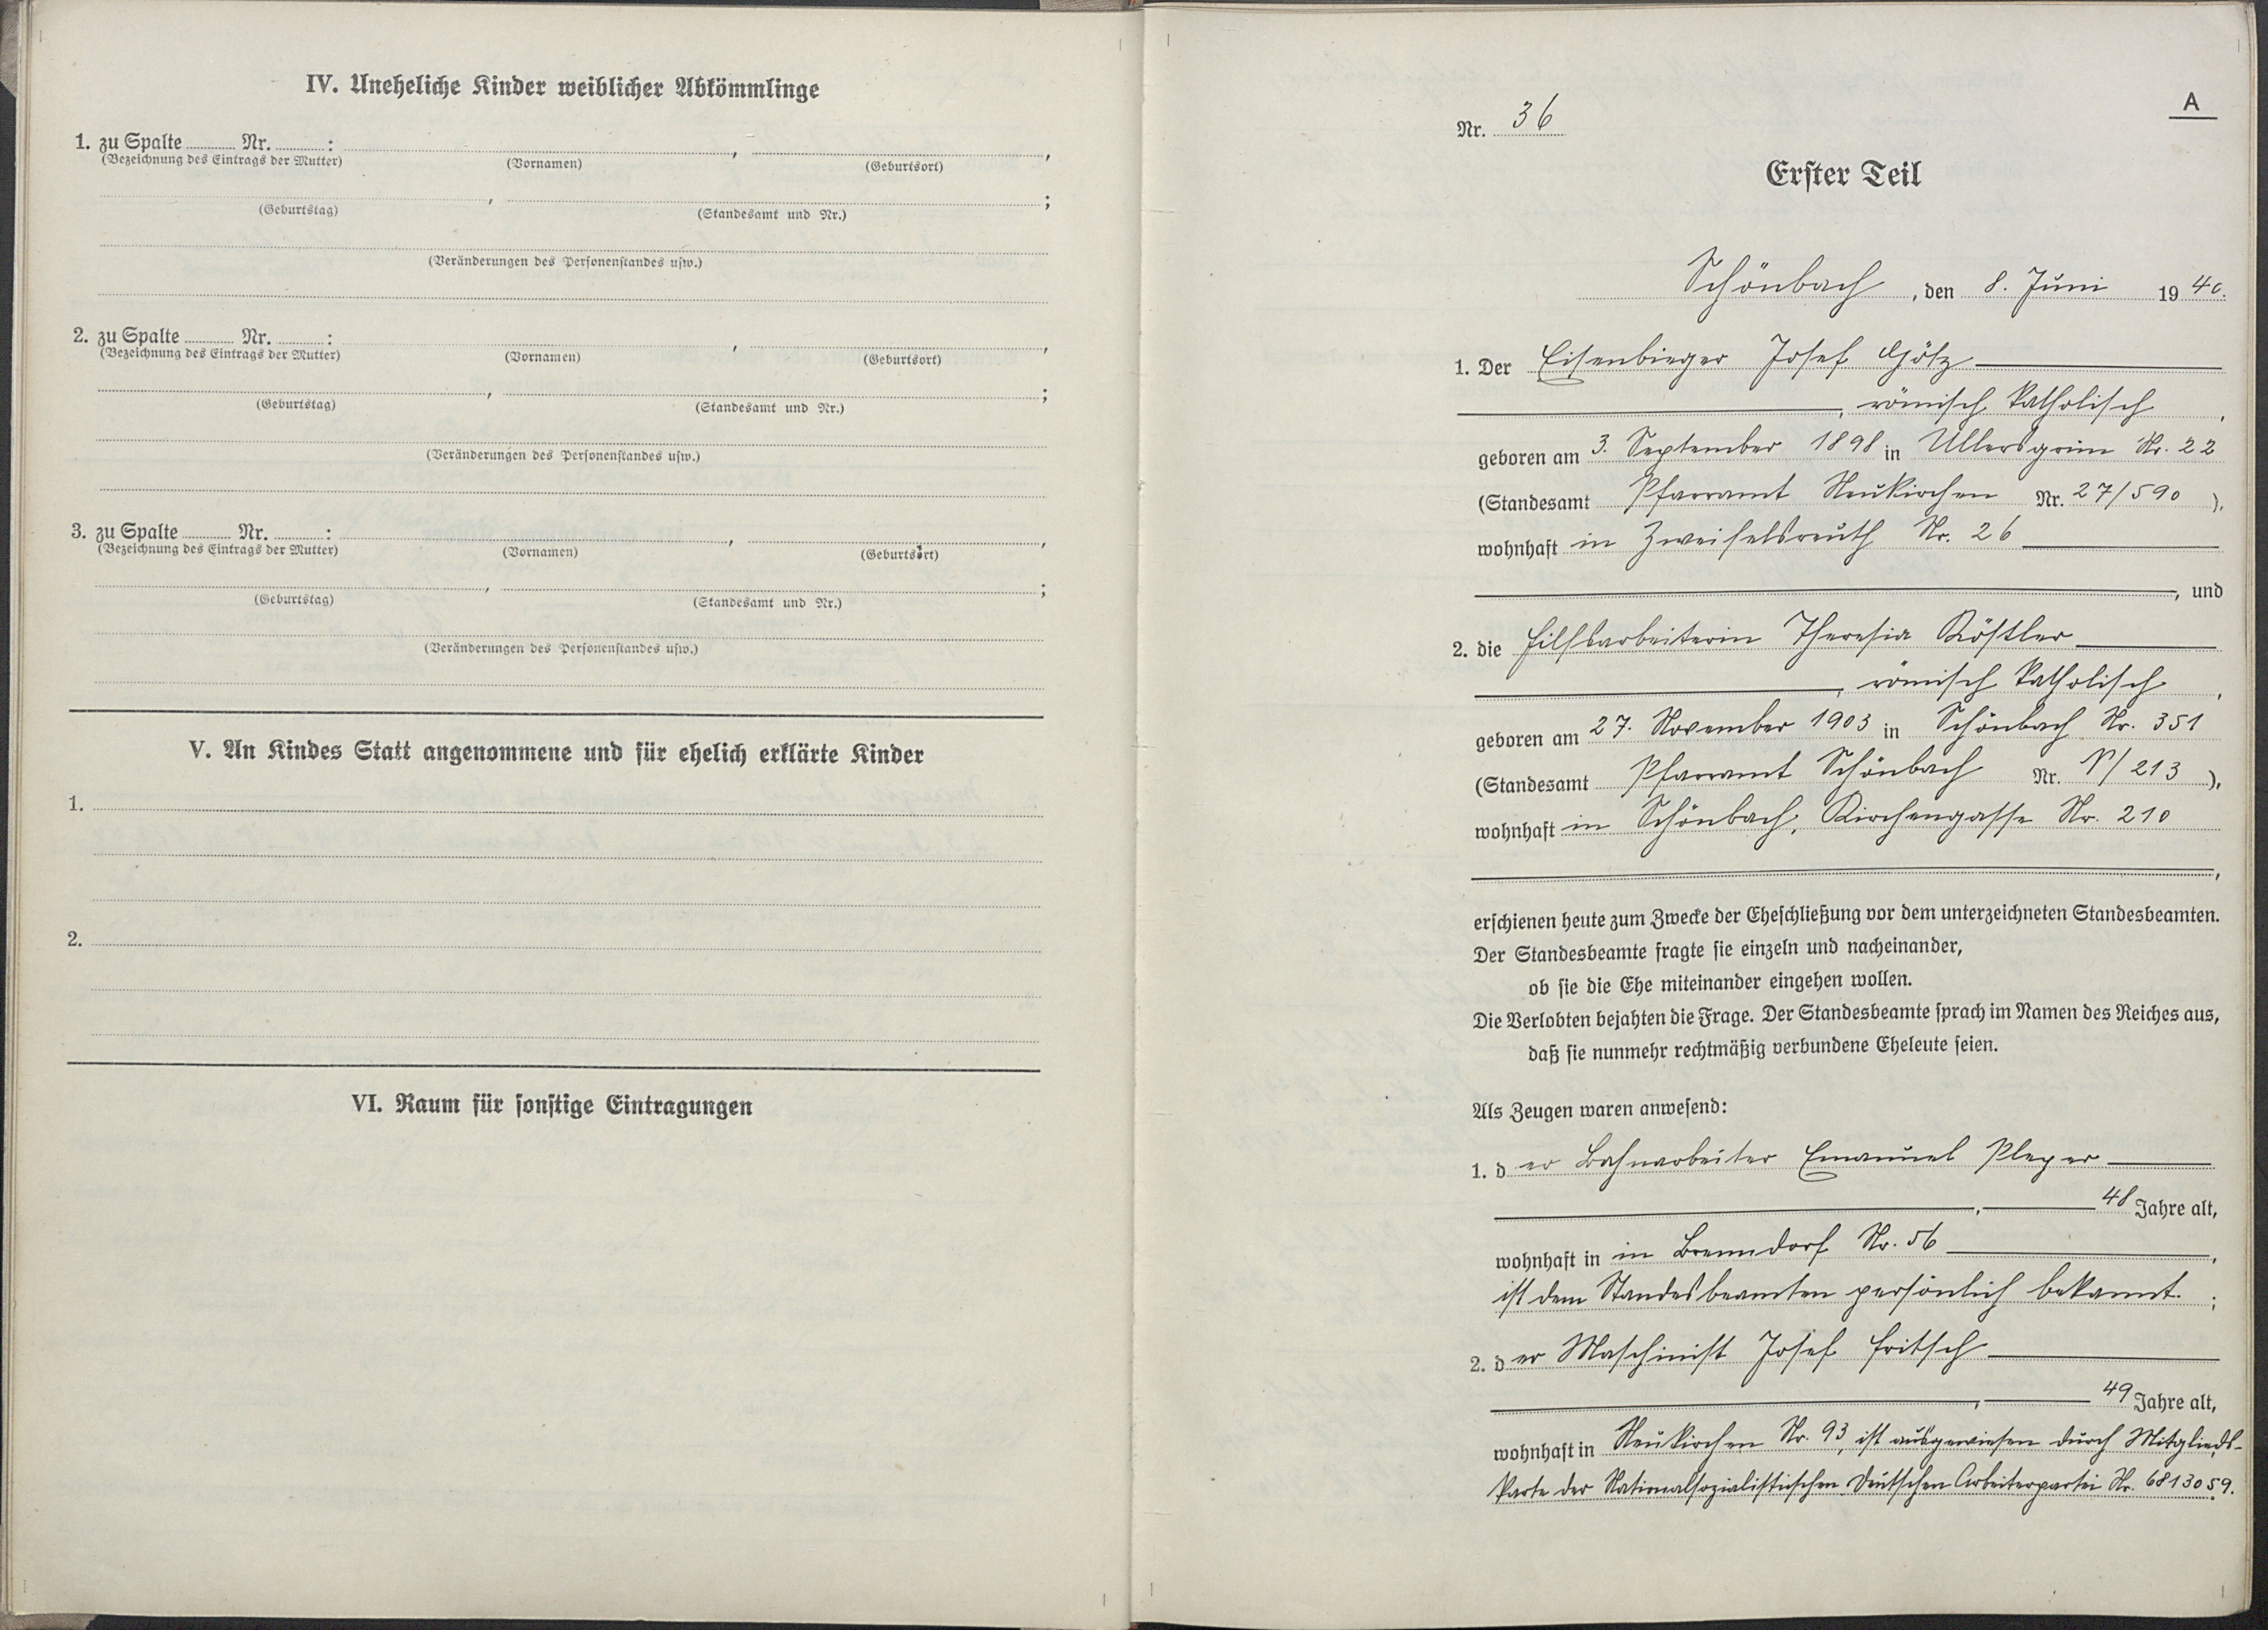 IV. Uneheliche Kinder weiblicher Abkömmlinge
1. zu Spalte ............ Nr. ............ : , ,
(Bezeichnung des Eintrags der Mutter) (Vornamen) (Geburtsort)
, ;
(Geburtstag) (Standesamt und Nr.)
(Veränderungen des Personenstandes usw.)
2. zu Spalte ............ Nr. ............ : , ,
(Bezeichnung des Eintrags der Mutter) (Vornamen) (Geburtsort)
, ;
(Geburtstag) (Standesamt und Nr.)
(Veränderungen des Personenstandes usw.)
3. zu Spalte ............ Nr. ............ : , ,
(Bezeichnung des Eintrags der Mutter) (Vornamen) (Geburtsort)
, ;
(Geburtstag) (Standesamt und Nr.)
(Veränderungen des Personenstandes usw.)
V. An Kindes Statt angenommene und für ehelich erklärte Kinder
1.
2.
VI. Raum für sonstige Eintragungen
A
Nr. 36
Erster Teil
Schönbach, den 8. Juni 1940.
1. Der Eisenbieger Josef Götz
, römisch katholisch,
geboren am 3. September 1898 in Ullersgrün Nr. 22
(Standesamt Pfarramt Neukirchen Nr. 27/590),
wohnhaft in Zweifelsreuth Nr. 26
, und
2. die Hilfsarbeiterin Theresia Röstler
, römisch katholisch,
geboren am 27. November 1903 in Schönbach Nr. 351
(Standesamt Pfarramt Schönbach Nr. /213),
wohnhaft in Schönbach, Kirchengasse Nr. 210
,
erschienen heute zum Zwecke der Eheschließung vor dem unterzeichneten Standesbeamten.
Der Standesbeamte fragte sie einzeln und nacheinander,
ob sie die Ehe miteinander eingehen wollen.
Die Verlobten bejahten die Frage. Der Standesbeamte sprach im Namen des Reiches aus,
daß sie nunmehr rechtmäßig verbundene Eheleute seien.
Als Zeugen waren anwesend:
1. der Bahnarbeiter Emanuel Pleyer
, 48 Jahre alt,
wohnhaft in in Brenndorf Nr. 56,
ist dem Standesbeamten persönlich bekannt. ;
2. der Maschinist Josef Fritsch
, 49 Jahre alt,
wohnhaft in Neukirchen Nr. 93, ist ausgewiesen durch Mitglieds-
karte der Nationalsozialistischen Deutschen Arbeiterpartei Nr. 6813059.